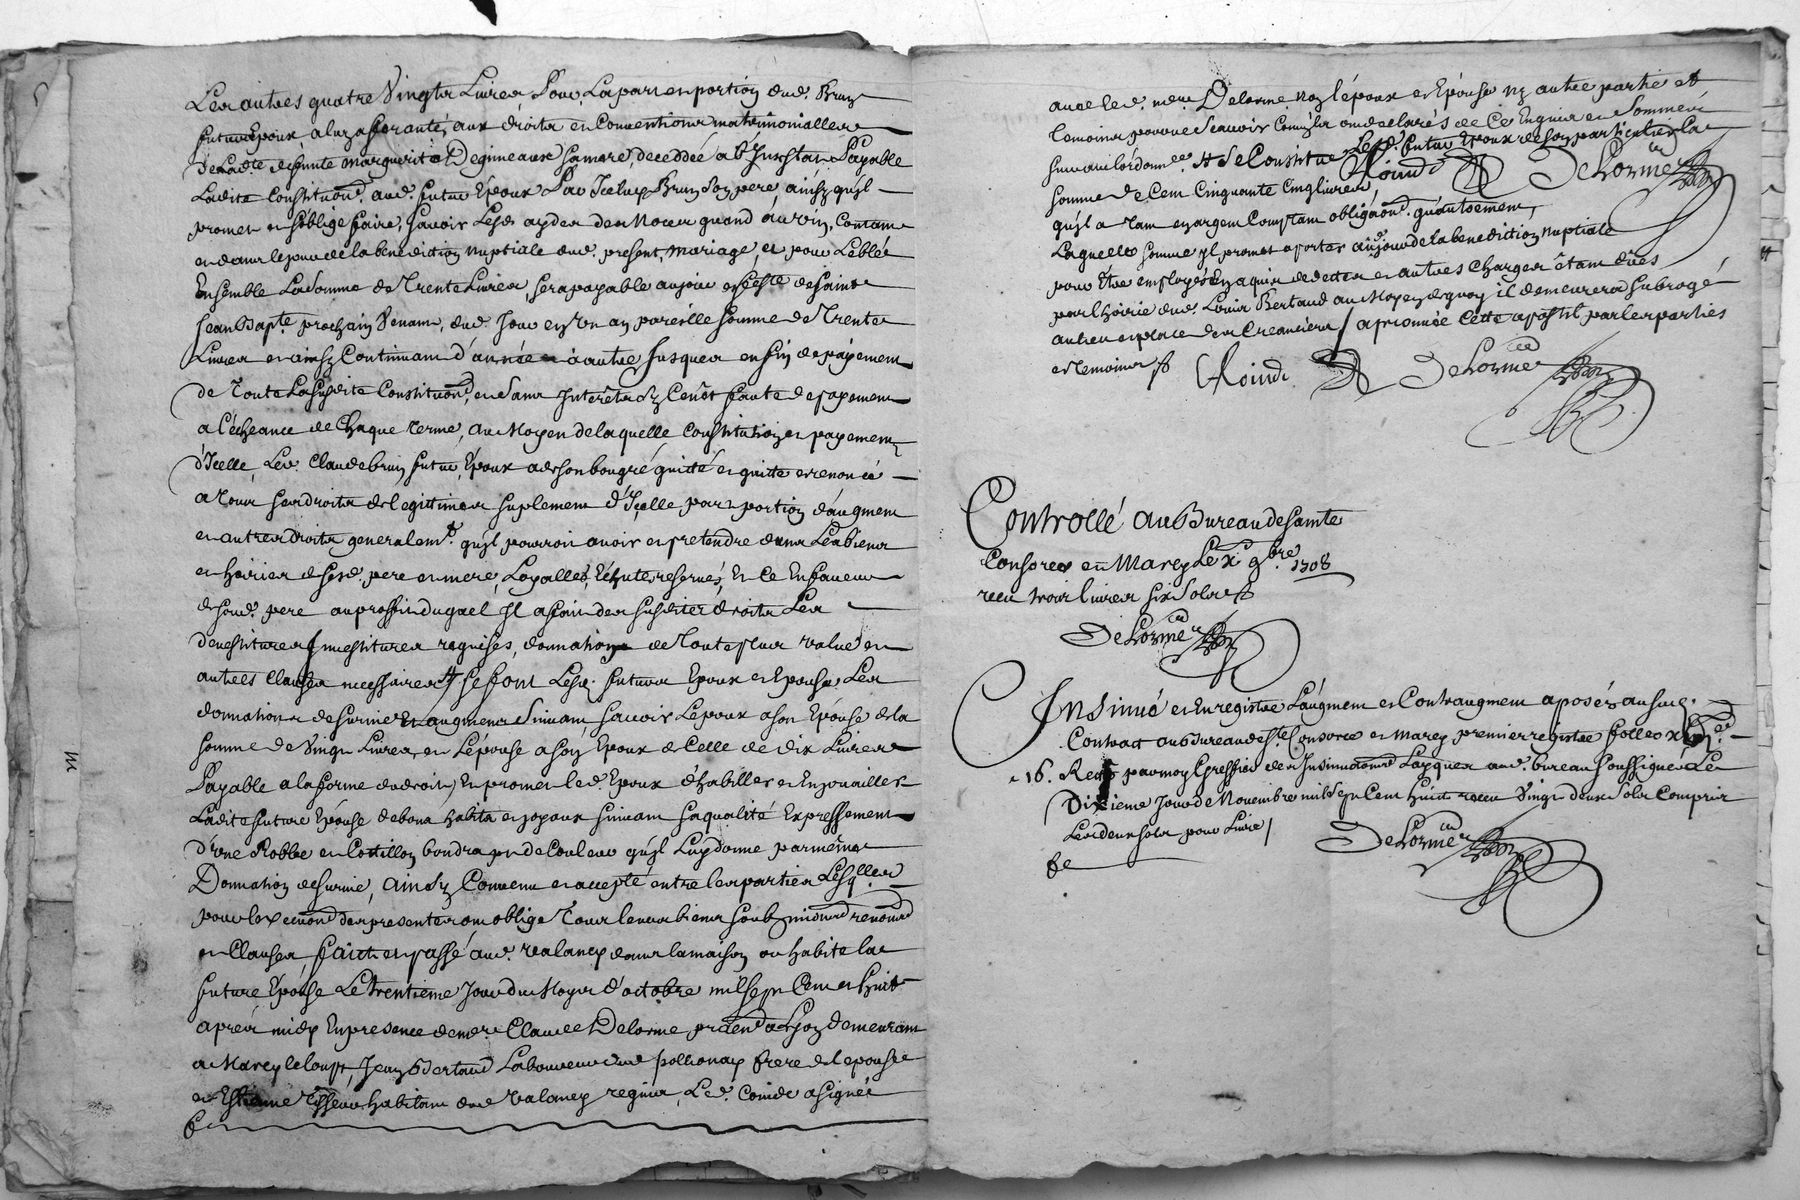 Les autres quatre Vingts Livres Pour La part et portion dud. Brun
futur Epoux, a luy afferante, aux droits et Conventions matrimonialles
de Ladte deffunte margueritte Degimeaux sa mere, decedée ab Instat, Payable
Ladite Constitution aud. futur Epoux Par Iceluy Brun Son pere, ainsy qu'il
promet et s'oblige faire, Scavoir Lesd.
et dans le jour de la benediction nuptiale dud. present mariage, et pour Le bled
Ensemble La Somme de Trente Livres, sera payable au jour et feste de saint
Jean Bapte. prochain Venant, dud. Jour en Un an pareille somme de Trente
Livres et ainsy Continuant d'année a autre Jusques en fin de payement
de Toute La susdite Constitution, et Sans Interêts Sy Ce n'est faute de payement
a l'écheance de Chaque terme, au Moyen de laquelle Constitution et payement
d'Icelle, Led. Claude brun futur Epoux a de son bon gré quitté et quitte et renoncé
a Tous ses droits de legittimes suplement d'Icelle, part portion d'augment
et autres droits generalemt. qu'il pourroit avoir et pretendre dans Les biens
et hoiries de sesd. pere et mere, Loyalle Echute reservée, Et Ce En faveur
de sond. pere au proffit duquel Il a fait des susdites droits Les
devestitures Investitures requises, donnation de Toute plus value et
autres Clauses necessaires # se font Lesd. futurs Epoux et Epouse Les
donnations de survie Et augment Suivant scavoir L'epoux a son Epouse de la
somme de Vingt Livres, et L'épouse a son Epoux de Celle de dix Livres
Payable a la forme du droit, Et promet led. Epoux d'habiller et Enjoualler
Ladite future Epouse de bons habits et joyaux suivant sa qualité Expressement
d'une Robbe et Cotillon bon drap de Couleur qu'il Luy donne par même
Donnation de survie, ainsy Convenu et accepté entre les parties Lesqlles
pour lexecution des presentes ont obligé Tous leurs biens
et Clauses, fait et passé aud. Valancy dans la maison ou habite la
future Epouse Le trentieme Jour du Moys d'octobre mil sept Cent et huit
aprés midy En presence de mer. Claude Delorme praticien a Lyon demeurant
a Marcy le loup, Jean Bertaud Laboureur dud. pollionay frere de l'epouse
et Estienne habitant dud. Valancy requis, Led. Coindre a signé
avec led. mer. Delorme non l'époux et Epouse ny autre partie et
temoins pour ne Scavoir Comme Ils ont declarés de Ce Enquis et Sommés
suivant l'ordonnce. # se Constitue Led. futur Epoux de son particulier la
Coindre Delorme
somme de Cent Cinquante Cinq livres,
qu'il a Tant en argent Comptant obligaons. qu'autrement,
Laquelle somme il promet aporter aud. jour de la benediction nuptiale
pour Etre employée En aquis de dettes et autres Charges étant dües
par l'hoirie dud. Louis Bertaud au Moyen de quoy il demeurera subrogé
au lieu et place des Creanciers / aprouvée cette apostil par les parties
et temoins #
Coindre Delorme
Controllé au Bureau de Sainte
Consorce et Marcy Le Xe 9bre. 1708
receu trois livres six sols
Delorme
Insinué et Enregistré L'augment et Contraugment aposés au susd.
Contract au Bureau de Ste. Consorce et Marcy premier registre folleo
16. Recto par moy Greffier des Insinuations Layques aud. bureau soussigné Le
Dixieme Jour de Novembre mil sept Cent huit receu Vingt deux sols Compris
Les deux sols pour Livre /
Delorme